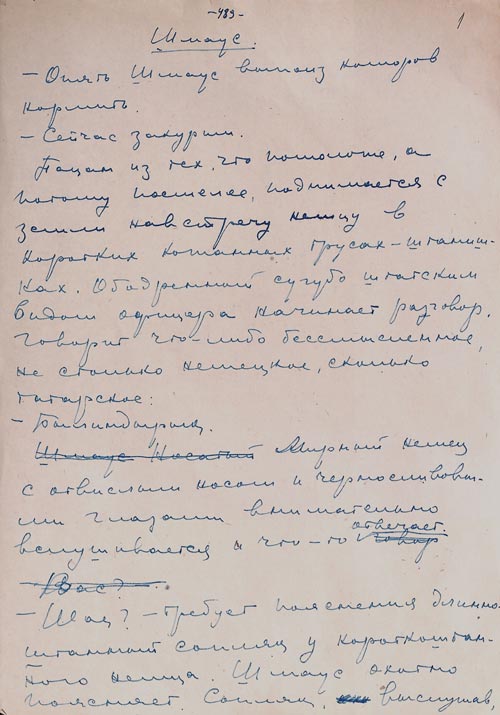 -489-
1
Шмаус.
- Опять Шмаус выполз комаров
кормить.
- Сейчас закурим.
Пацан из тех, что помоложе, а
потому посмелее, поднимается с
земли навстречу немцу в
коротких кожанных трусах-штаниш-
ках. Ободренный сугубо штатским
видом офицера начинает разговор,
говорит что-либо бессмысленное,
не столько немецкое, сколько
татарское:
-
Шмаус Носатый Мирный немец
с отвислым носом и черносливовы-
ми глазами внимательно
отвечает.
вслушивается и что-то говор
- Вас?
- Шац? - требует пояснения длинно-
штанный сопляк у короткоштан-
ного немца. Шмаус охотно
поясняет. Сопляк, выслушав,